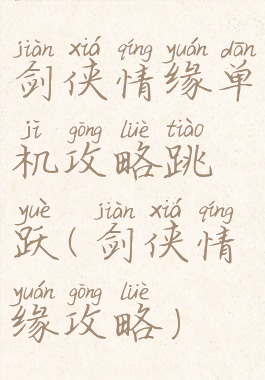 jiàn xiá qíng yuán dān
剑侠情缘单
jī gōng lüè tiào
机攻略跳
yuè jiàn xiá qíng
跃(剑侠情
yuán gōng lüè
缘攻略)